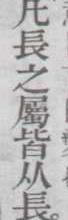 凡長之屬皆从長